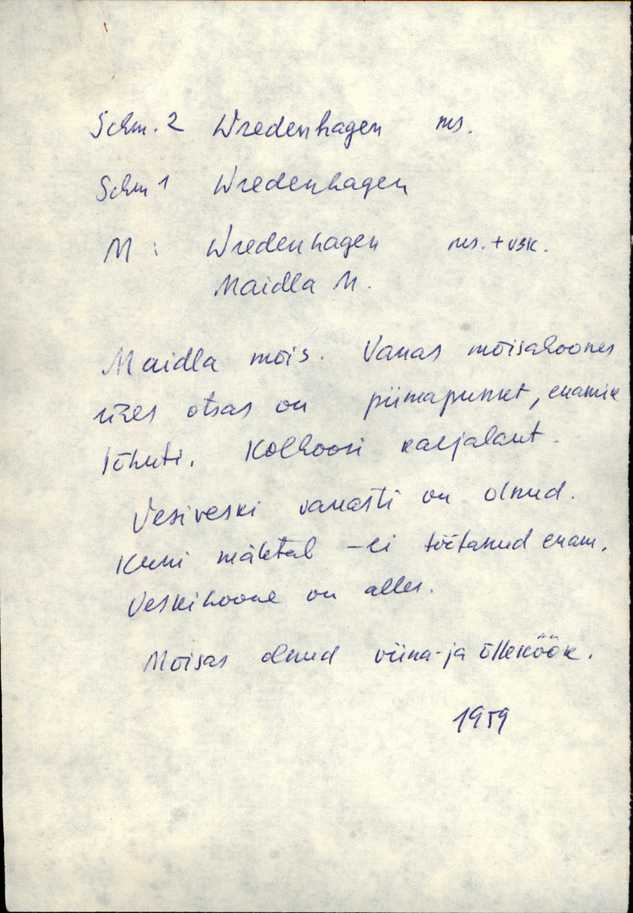 Schm. 2 Wredenhagen ms.
Schm 1 Wredenhagen
M : Wredenhagen ms. + vsk.
Maidla M.
Maidla mõis. Vanas mõisahoones
ühes otsas on piimapunkt, enamik
lõhuti. Kolhoosi karjalaut.
Vesiveski vanasti on olnud.
Kuni mäletab - ei töötanud enam.
Veskihoone on alles.
Mõisas olnud viina- ja õlleköök.
1959